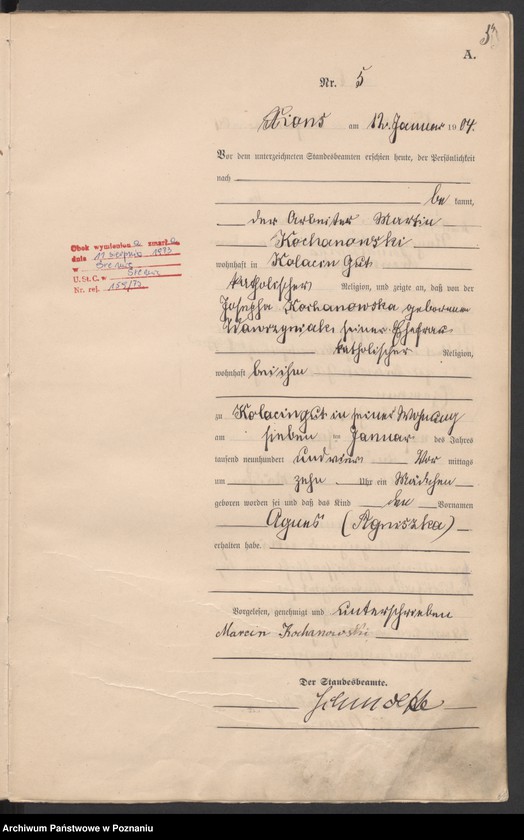 A.
Nr. 5
Xions am 12. Januar 1904.
Vor dem unterzeichneten Standesbeamten erschien heute, der Persönlichkeit
nach
be kannt,
der Arbeiter Martin
Kochanowski
wohnhaft in Kolacin Gut
katholischer Religion, und zeigte an, daß von der
Josepha Kochanowska geborene
Wawrzyniak seiner Ehefrau
katholischer Religion,
wohnhaft bei ihm
zu Kolacin gut in seiner Wohnung
am sieben ten Januar des Jahres
tausend neunhundert und vier Vor mittags
um zehn Uhr ein Mädchen
geboren worden sei und daß das Kind den Vornamen
Agnes (Agniszka)
erhalten habe.
Vorgelesen, genehmigt und unterschrieben
Marcin Kochanowski
Der Standesbeamte.
Obok wymieniona zmarła
dnia 11 sierpnia 1973
w Śremie
U. St. C. w Śremie
Nr. rej.
Archiwum Państwowe w Poznaniu